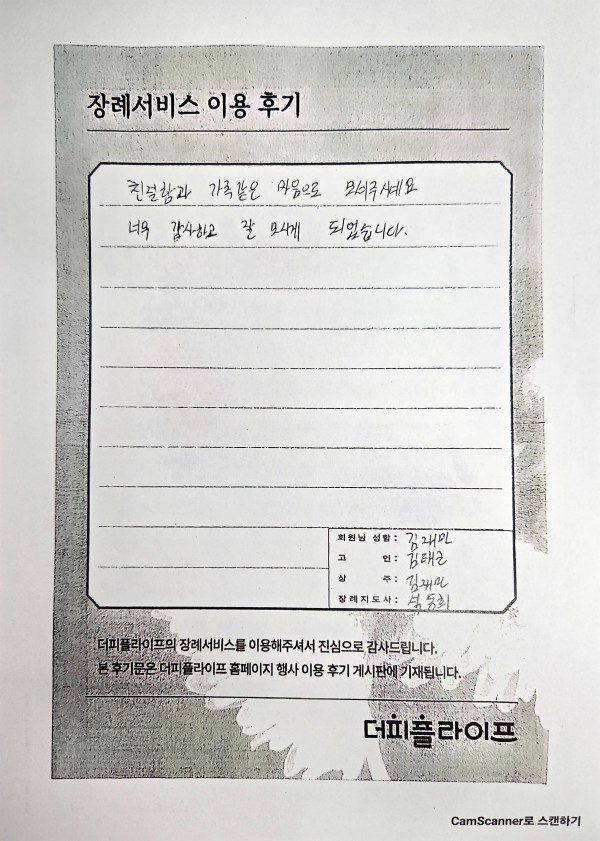 장례서비스 이용 후기
친절함과 가족같은 마음으로 모셔주셔요
너무 감사하고 잘 모시게 되었습니다.
회원님 성함 : 김재민
고 인 : 김태근
상 주 : 김재민
장례지도사 : 석동희
더피플라이프의 장례서비스를 이용해주셔서 진심으로 감사드립니다.
본 후기문은 더피플라이프 홈페이지 행사 이용 후기 게시판에 기재됩니다.
더피플라이프
CamScanner로 스캔하기